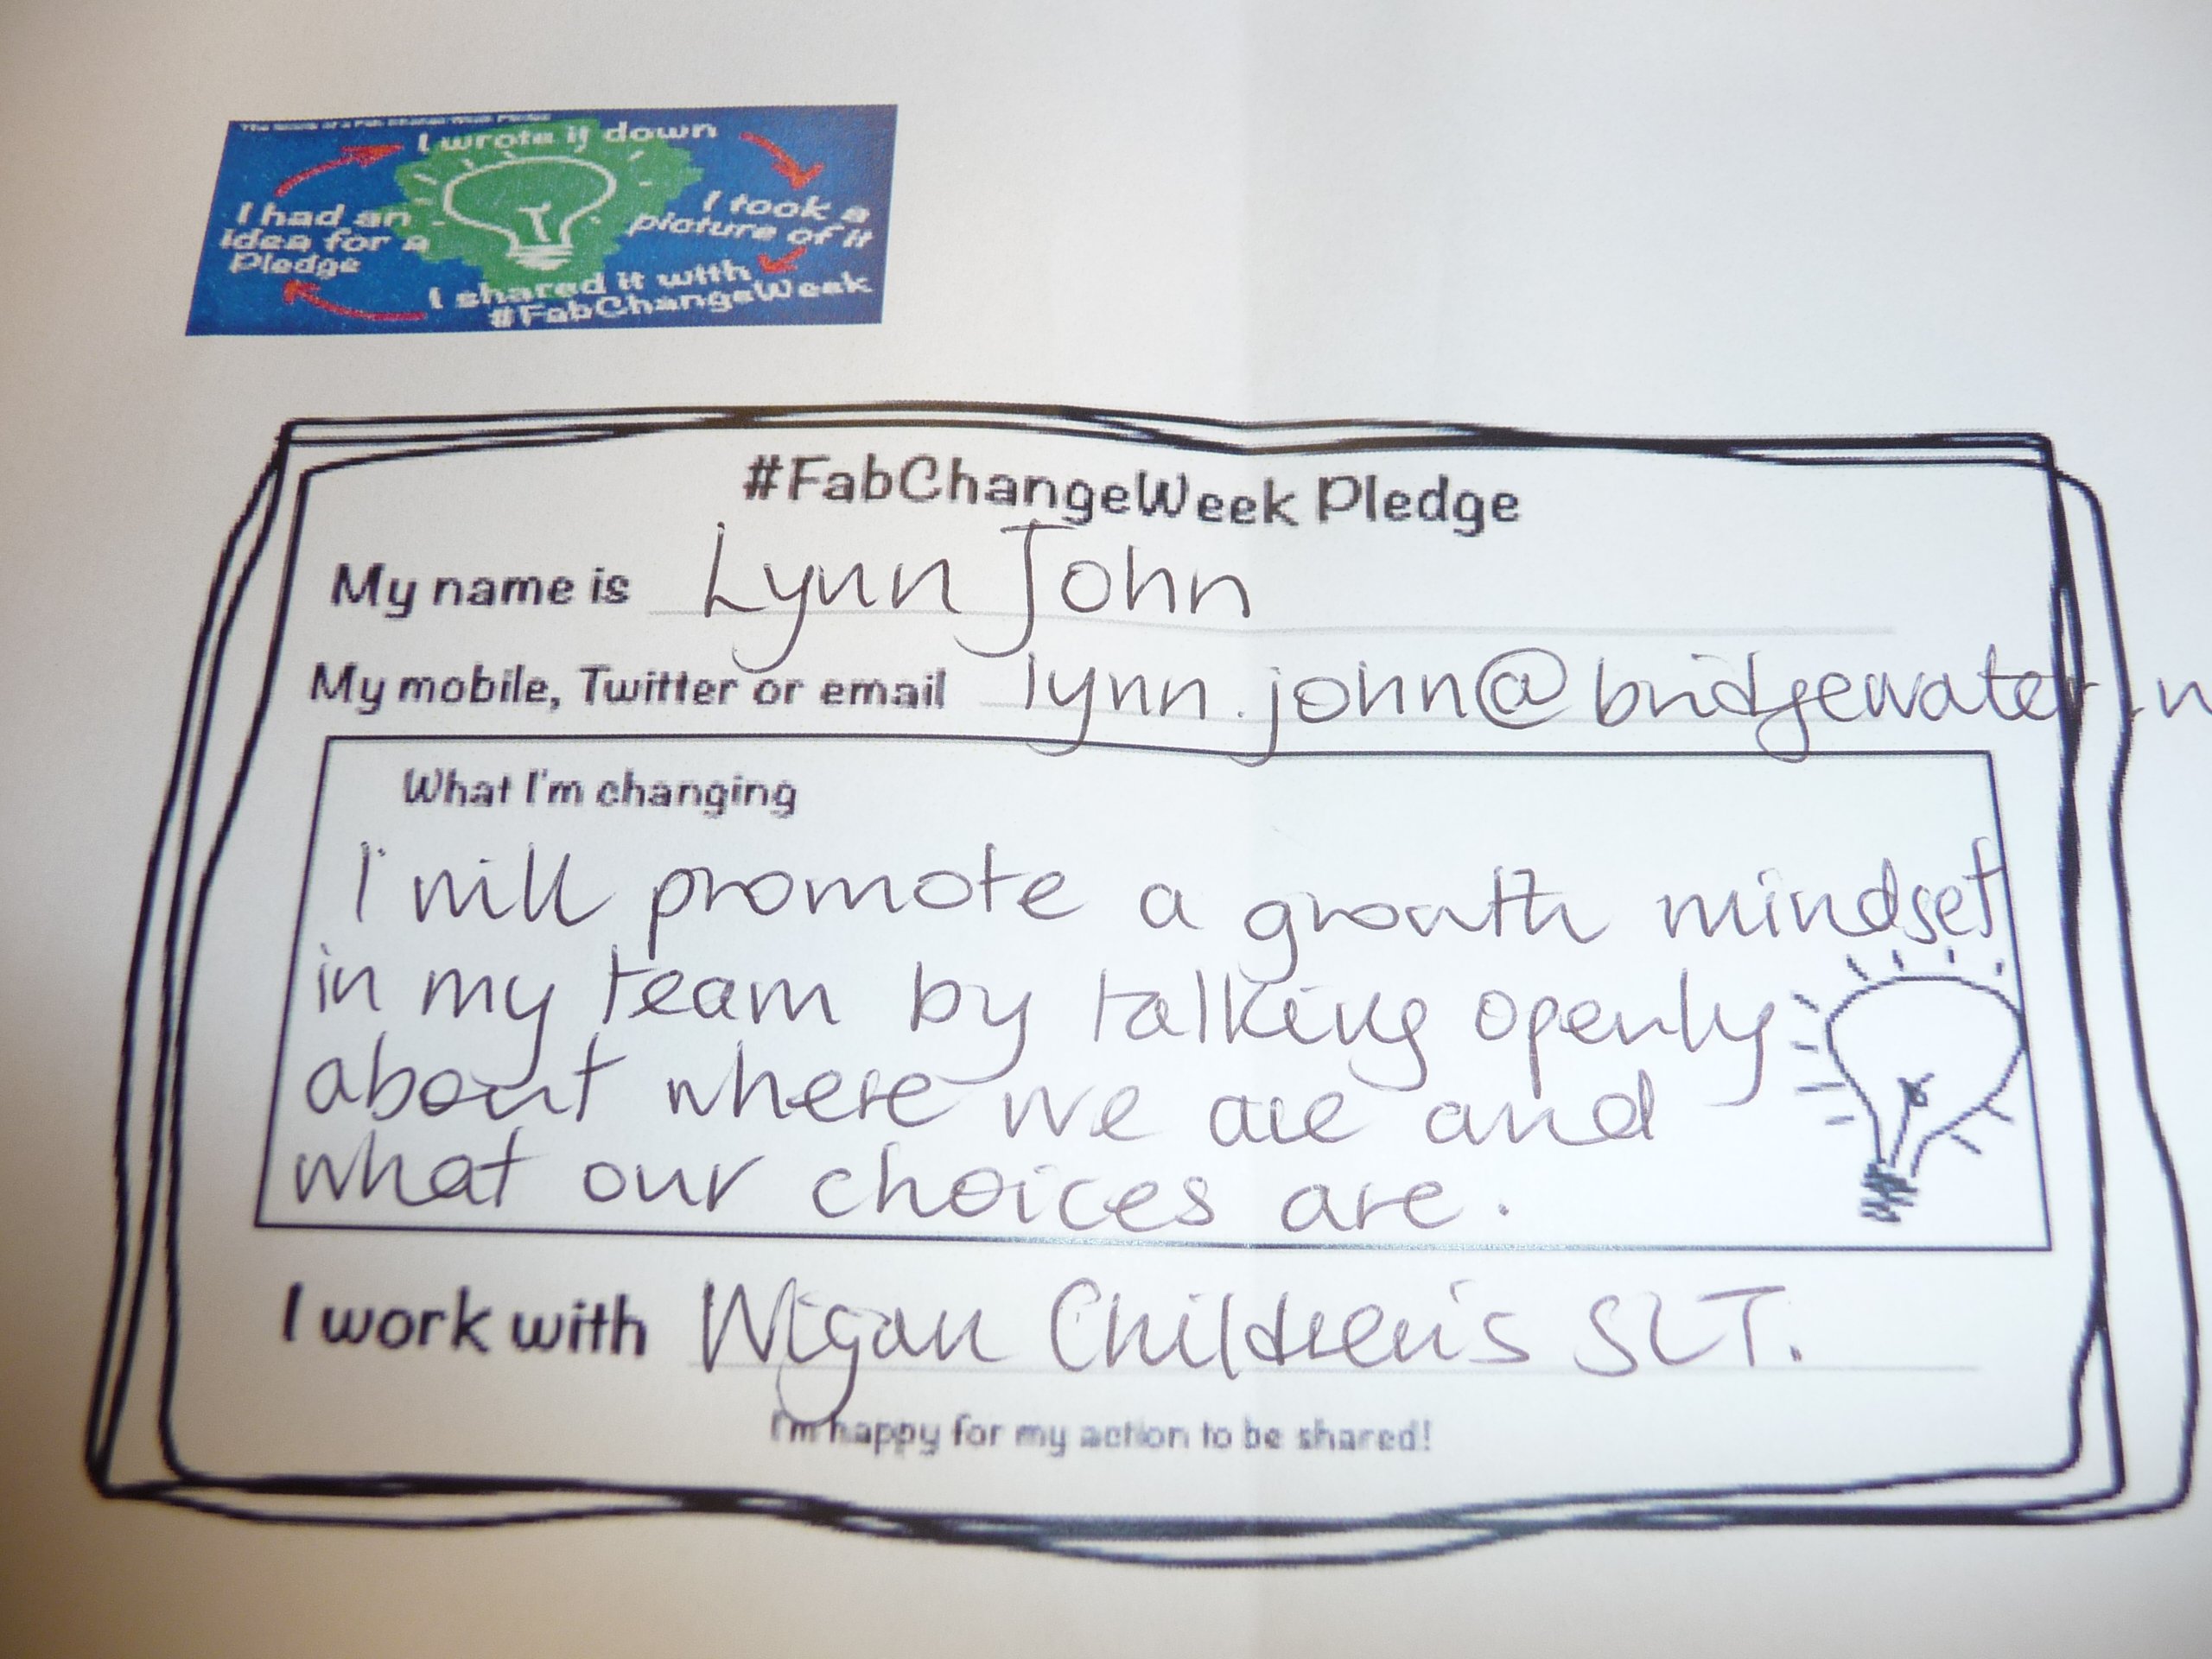 I wrote it down
I took a
picture of it
I had an
idea for a
Pledge
I shared it with
#FabChangeWeek
#FabChangeWeek Pledge
My name is Lynn John
My mobile, Twitter or email lynn.john@bridgewater.n
What I'm changing
I will promote a growth mindset
in my team by talking openly
about where we are and
what our choices are.
I work with Wigan Children's SLT.
I'm happy for my action to be shared!